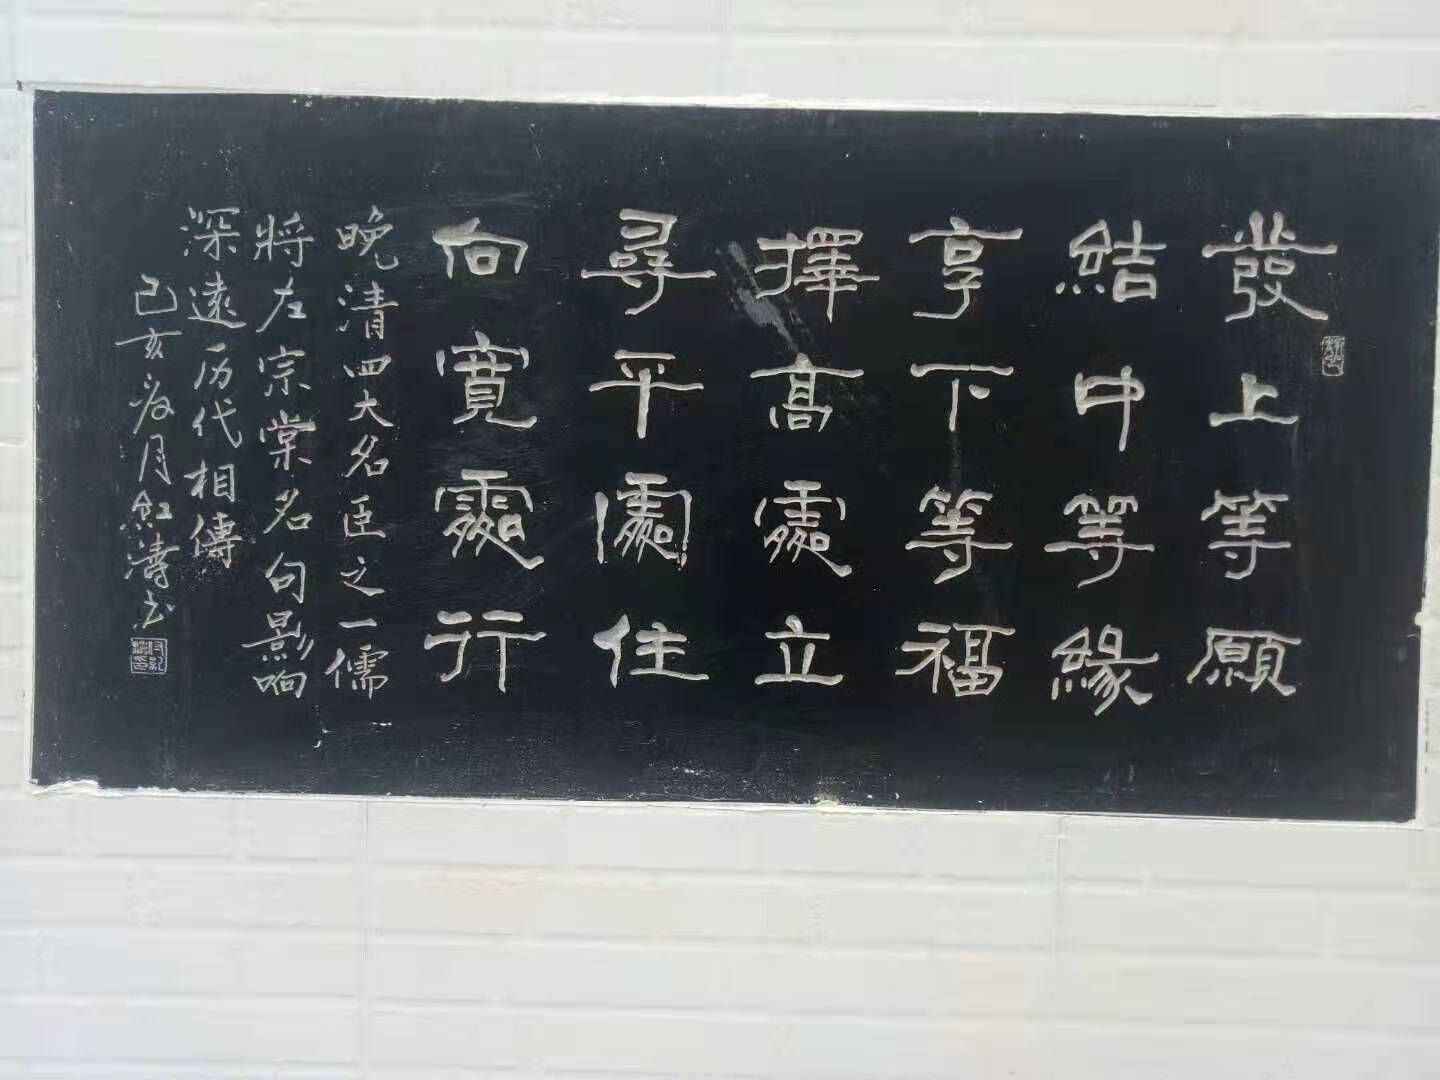 發上等願
結中等緣
享下等福
擇高處立
尋平處住
向寬處行
晚清四大名臣之一儒
將左宗棠名句影响
深遠历代相傳
己亥年月紅濤书